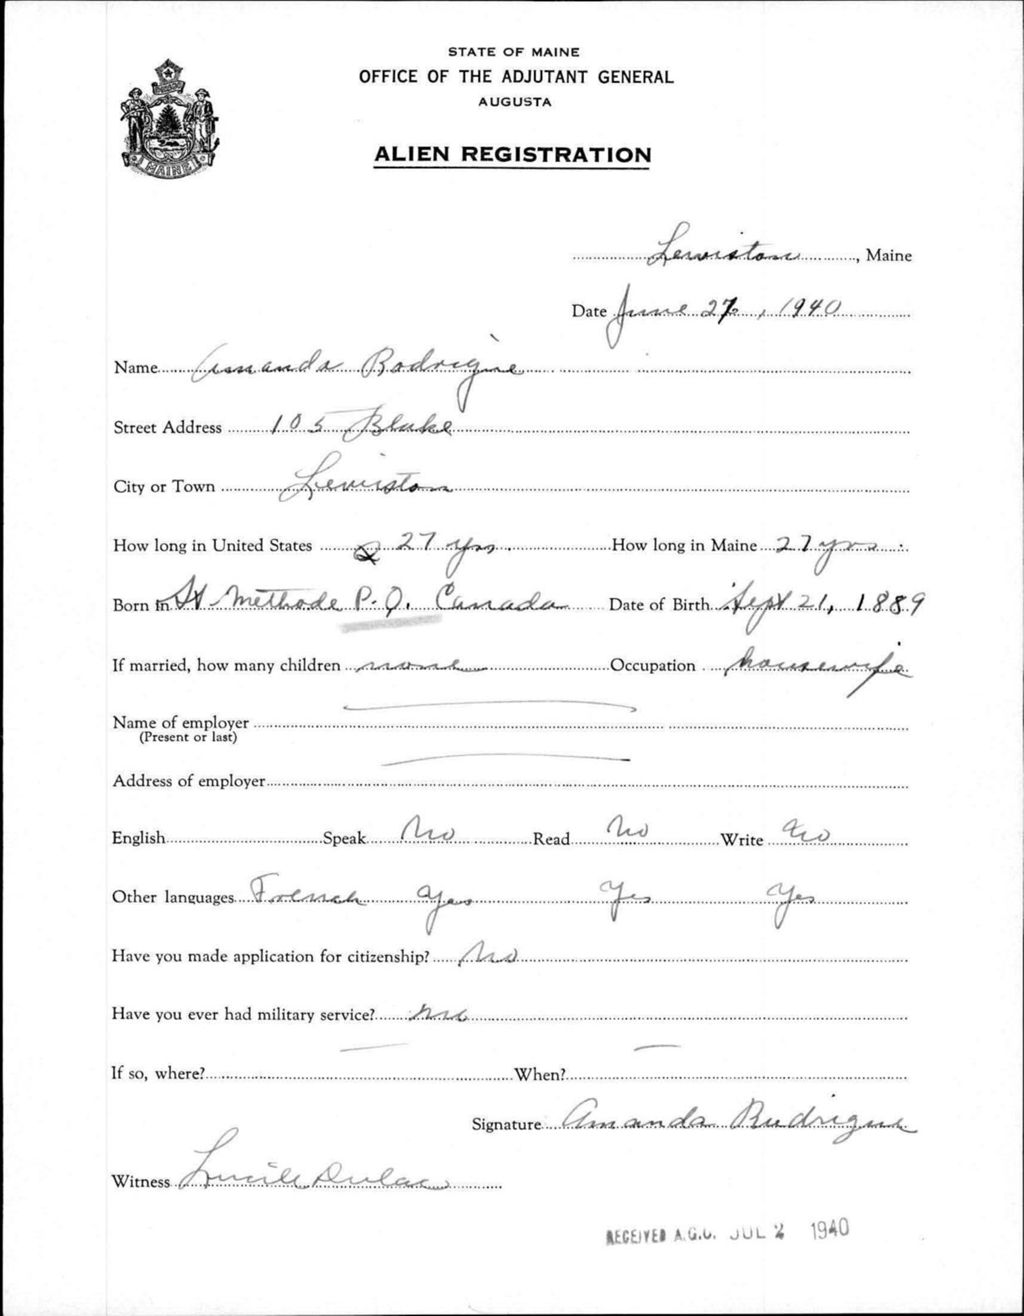 STATE OF MAINE
OFFICE OF THE ADJUTANT GENERAL
AUGUSTA
ALIEN REGISTRATION
MAINE
Lewiston, Maine
Date June 27, 1940
Name Amanda Rodrigue
Street Address 105 Blake
City or Town Lewiston
How long in United States 27 yrs. How long in Maine 27 yrs
Born in St Methode P.Q. Canada Date of Birth Sept 21, 1889
If married, how many children none Occupation housewife
Name of employer
(Present or last)
Address of employer
English Speak No Read No Write No
Other languages French Yes Yes Yes
Have you made application for citizenship? No
Have you ever had military service? No
If so, where? When?
Signature Amanda Rudrigue
Witness Lucile Dulac
RECEIVED A.G.O. JUL 2 1940